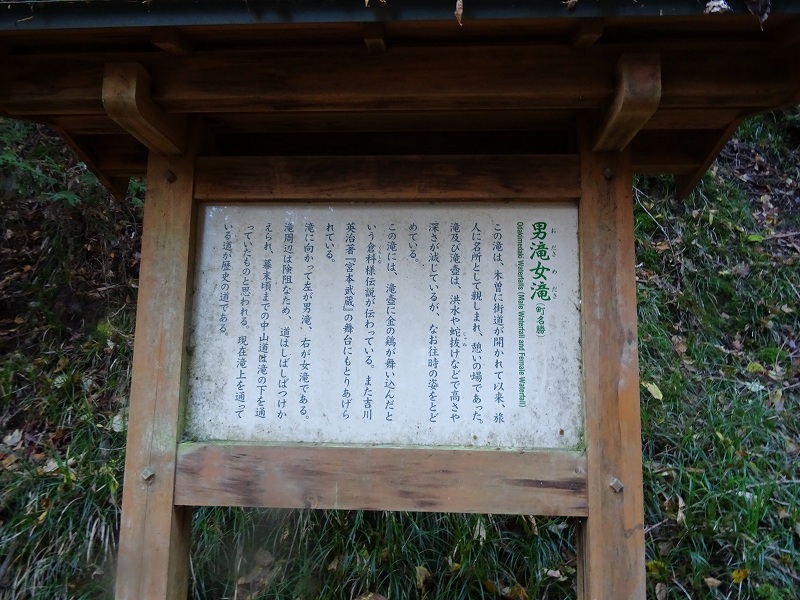 お だき め だき
男滝女滝(町名勝)
Odakimedaki Waterfalls (Male Waterfall and Female Waterfall)
この滝は、木曽に街道が開かれて以来、旅
人に名所として親しまれ、憩いの場であった。
じゃぬ
滝及び滝壺は、洪水や蛇抜けなどで高さや
深さが減じているが、なお往時の姿をとど
めている。
この滝には、滝壺に金の鶏が舞い込んだと
くらしな
いう倉科様伝説が伝わっている。また吉川
英治著『宮本武蔵』の舞台にもとりあげら
れている。
滝に向かって左が男滝、右が女滝である。
滝周辺は険阻なため、道はしばしばつけか
えられ、幕末頃までの中山道は滝の下を通
っていたものと思われる。現在滝上を通って
いる道が歴史の道である。